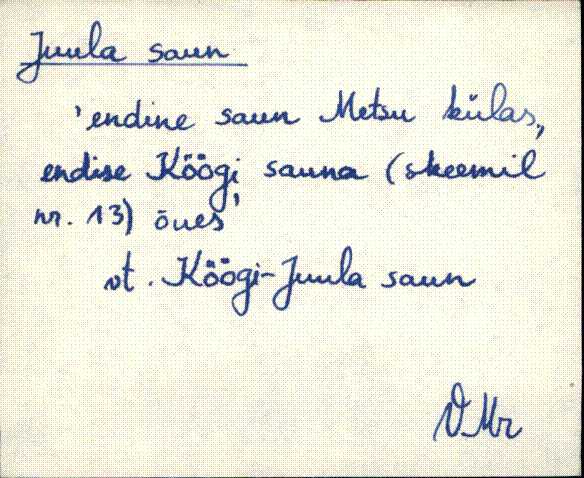 Juula saun
'endine saun Metsu külas,
endise Köögi sauna (skeemil
nr. 13) õues'
vt. Köögi-Juula saun
VMr